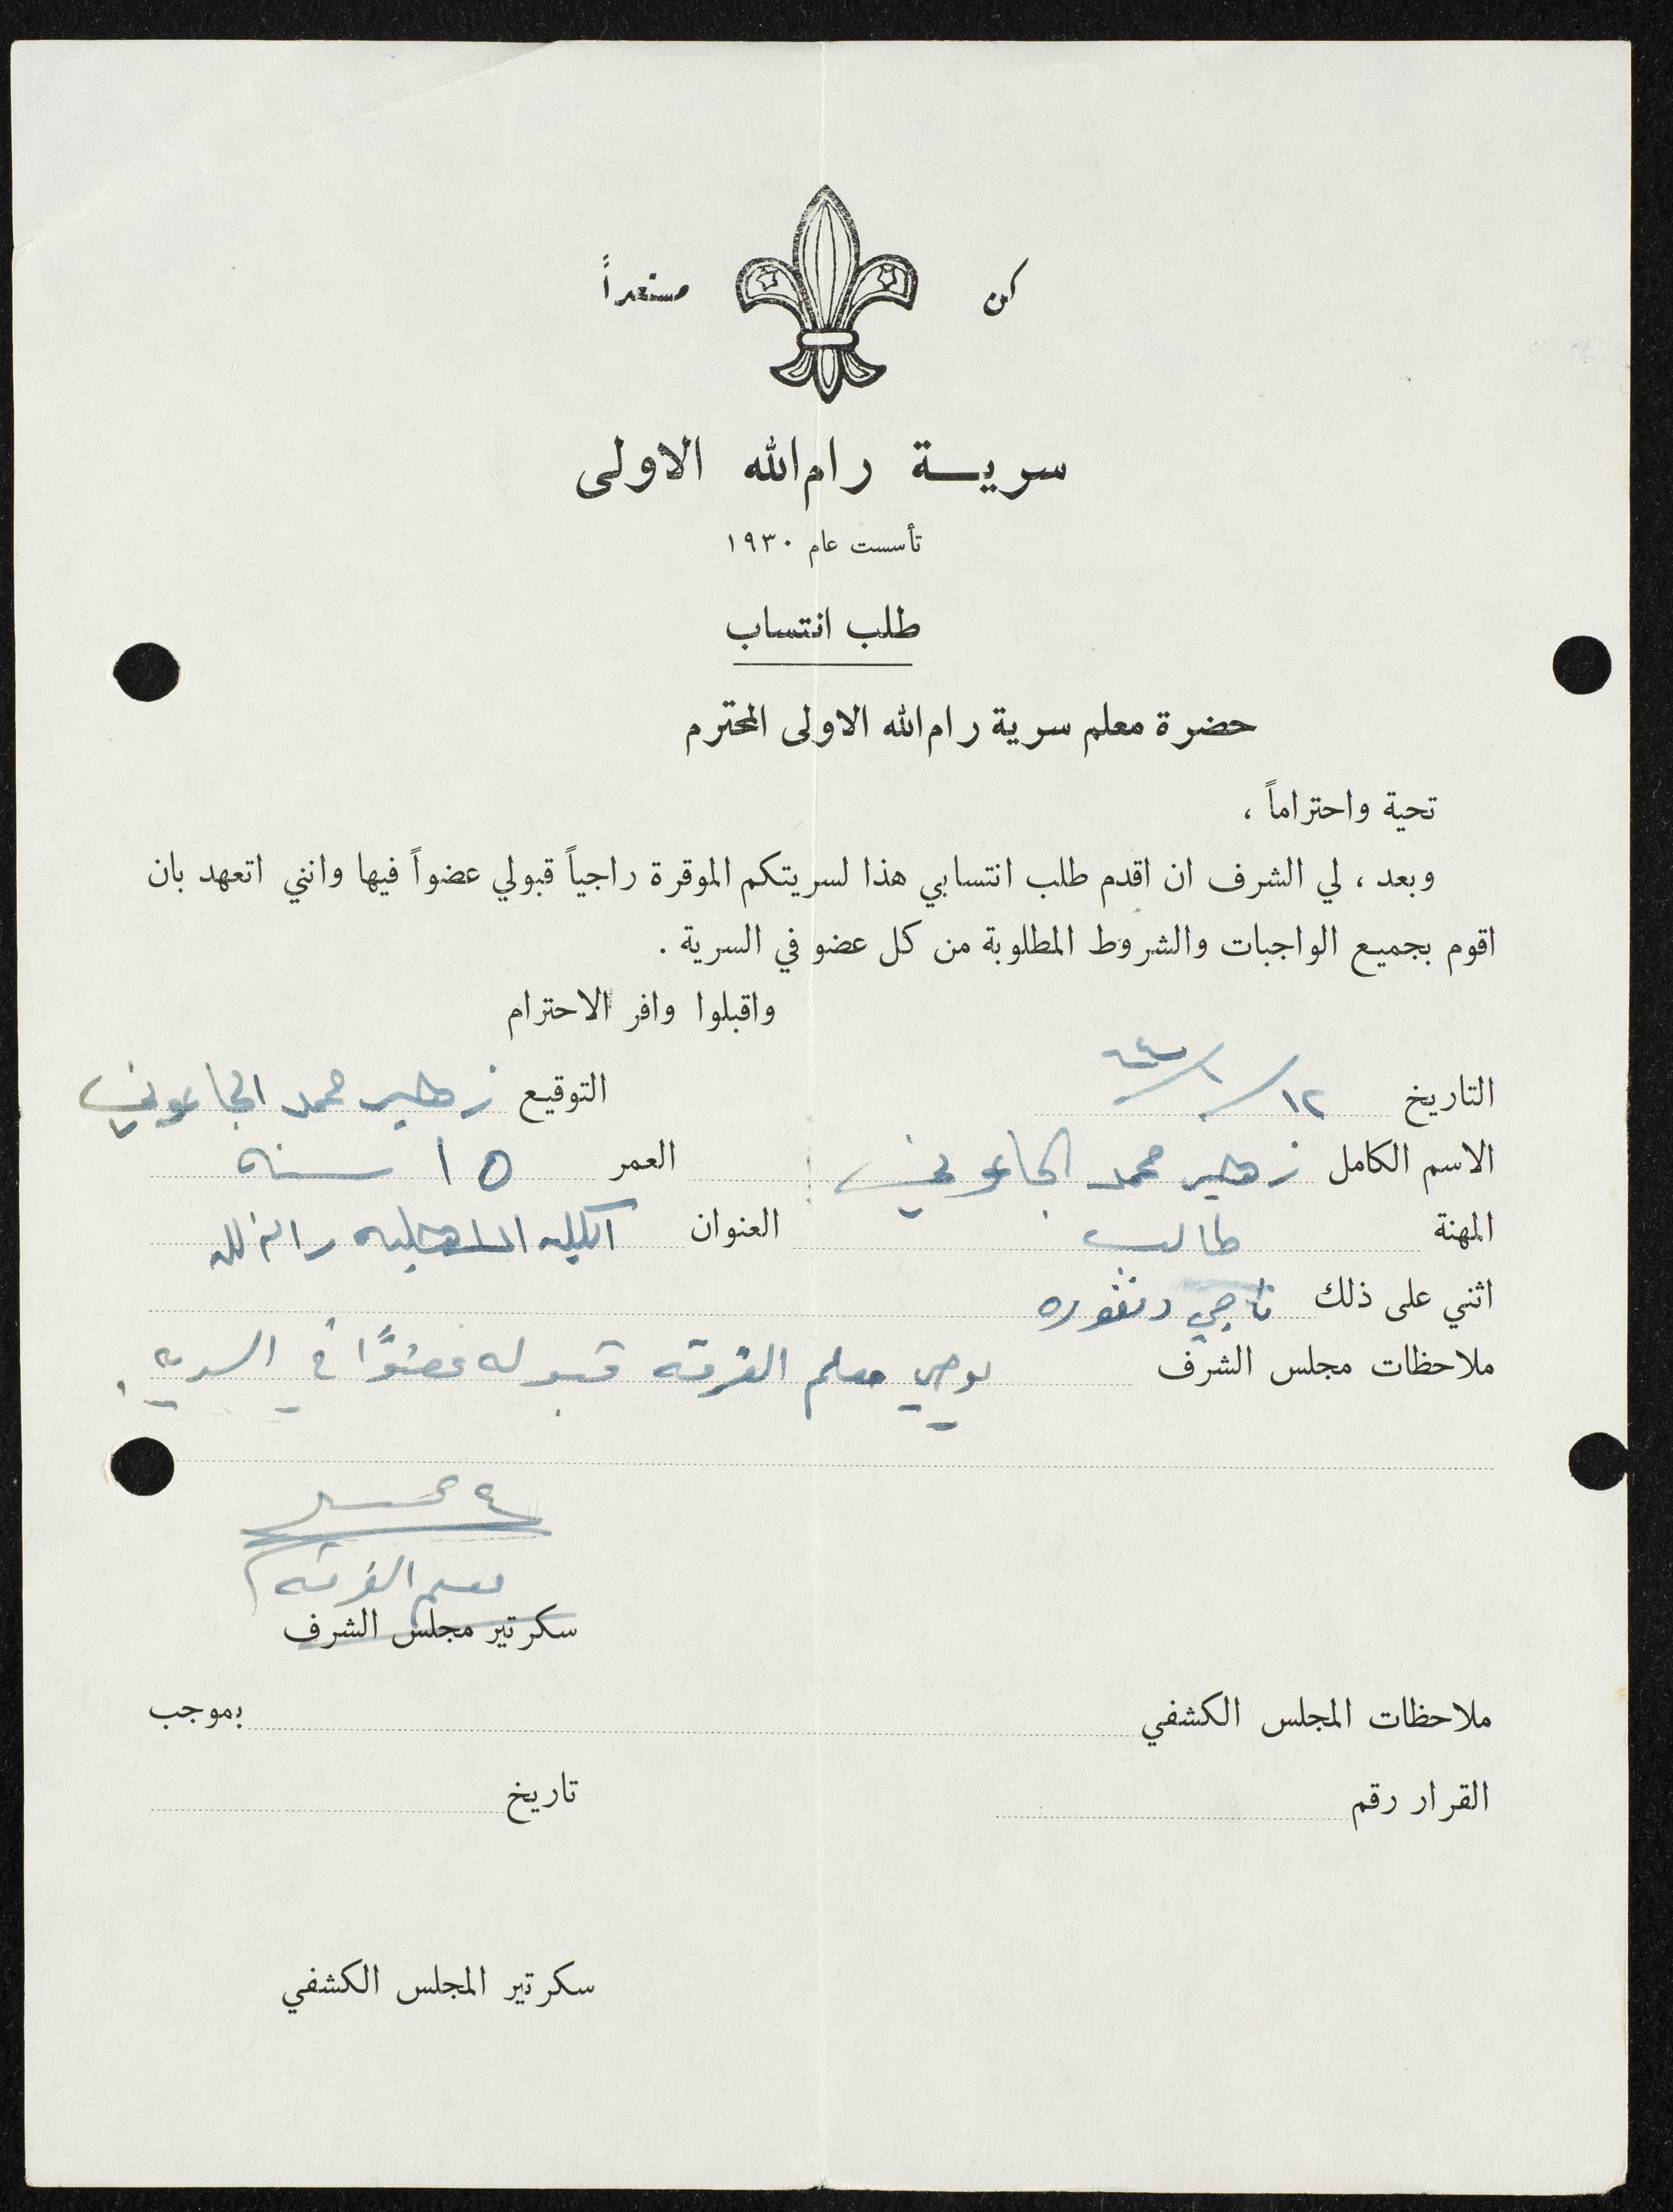 كن مستعداً
سرية رام الله الاولى
تأسست عام ١٩٣٠
طلب انتساب
حضرة معلم سرية رام الله الاولى المحترم
تحية واحتراماً ،
وبعد ، لي الشرف ان اقدم طلب انتسابي هذا لسريتكم الموقرة راجياً قبولي عضواً فيها وانني اتعهد بان
اقوم بجميع الواجبات والشروط المطلوبة من كل عضو في السرية .
واقبلوا وافر الاحترام
التاريخ ١٢/١/٦٤ التوقيع زهير محمد الجاعوني
الاسم الكامل زهير محمد الجاعوني العمر ١٥ سنه
المهنة طالب العنوان الكليه الاهليه رام الله
اثني على ذلك ناجي دنفوره
ملاحظات مجلس الشرف يوصي معلم الفرقه قبوله عضوًا في السرية .
معلم الفرقه
سكرتير مجلس الشرف
ملاحظات المجلس الكشفي بموجب
القرار رقم تاريخ
سكرتير المجلس الكشفي